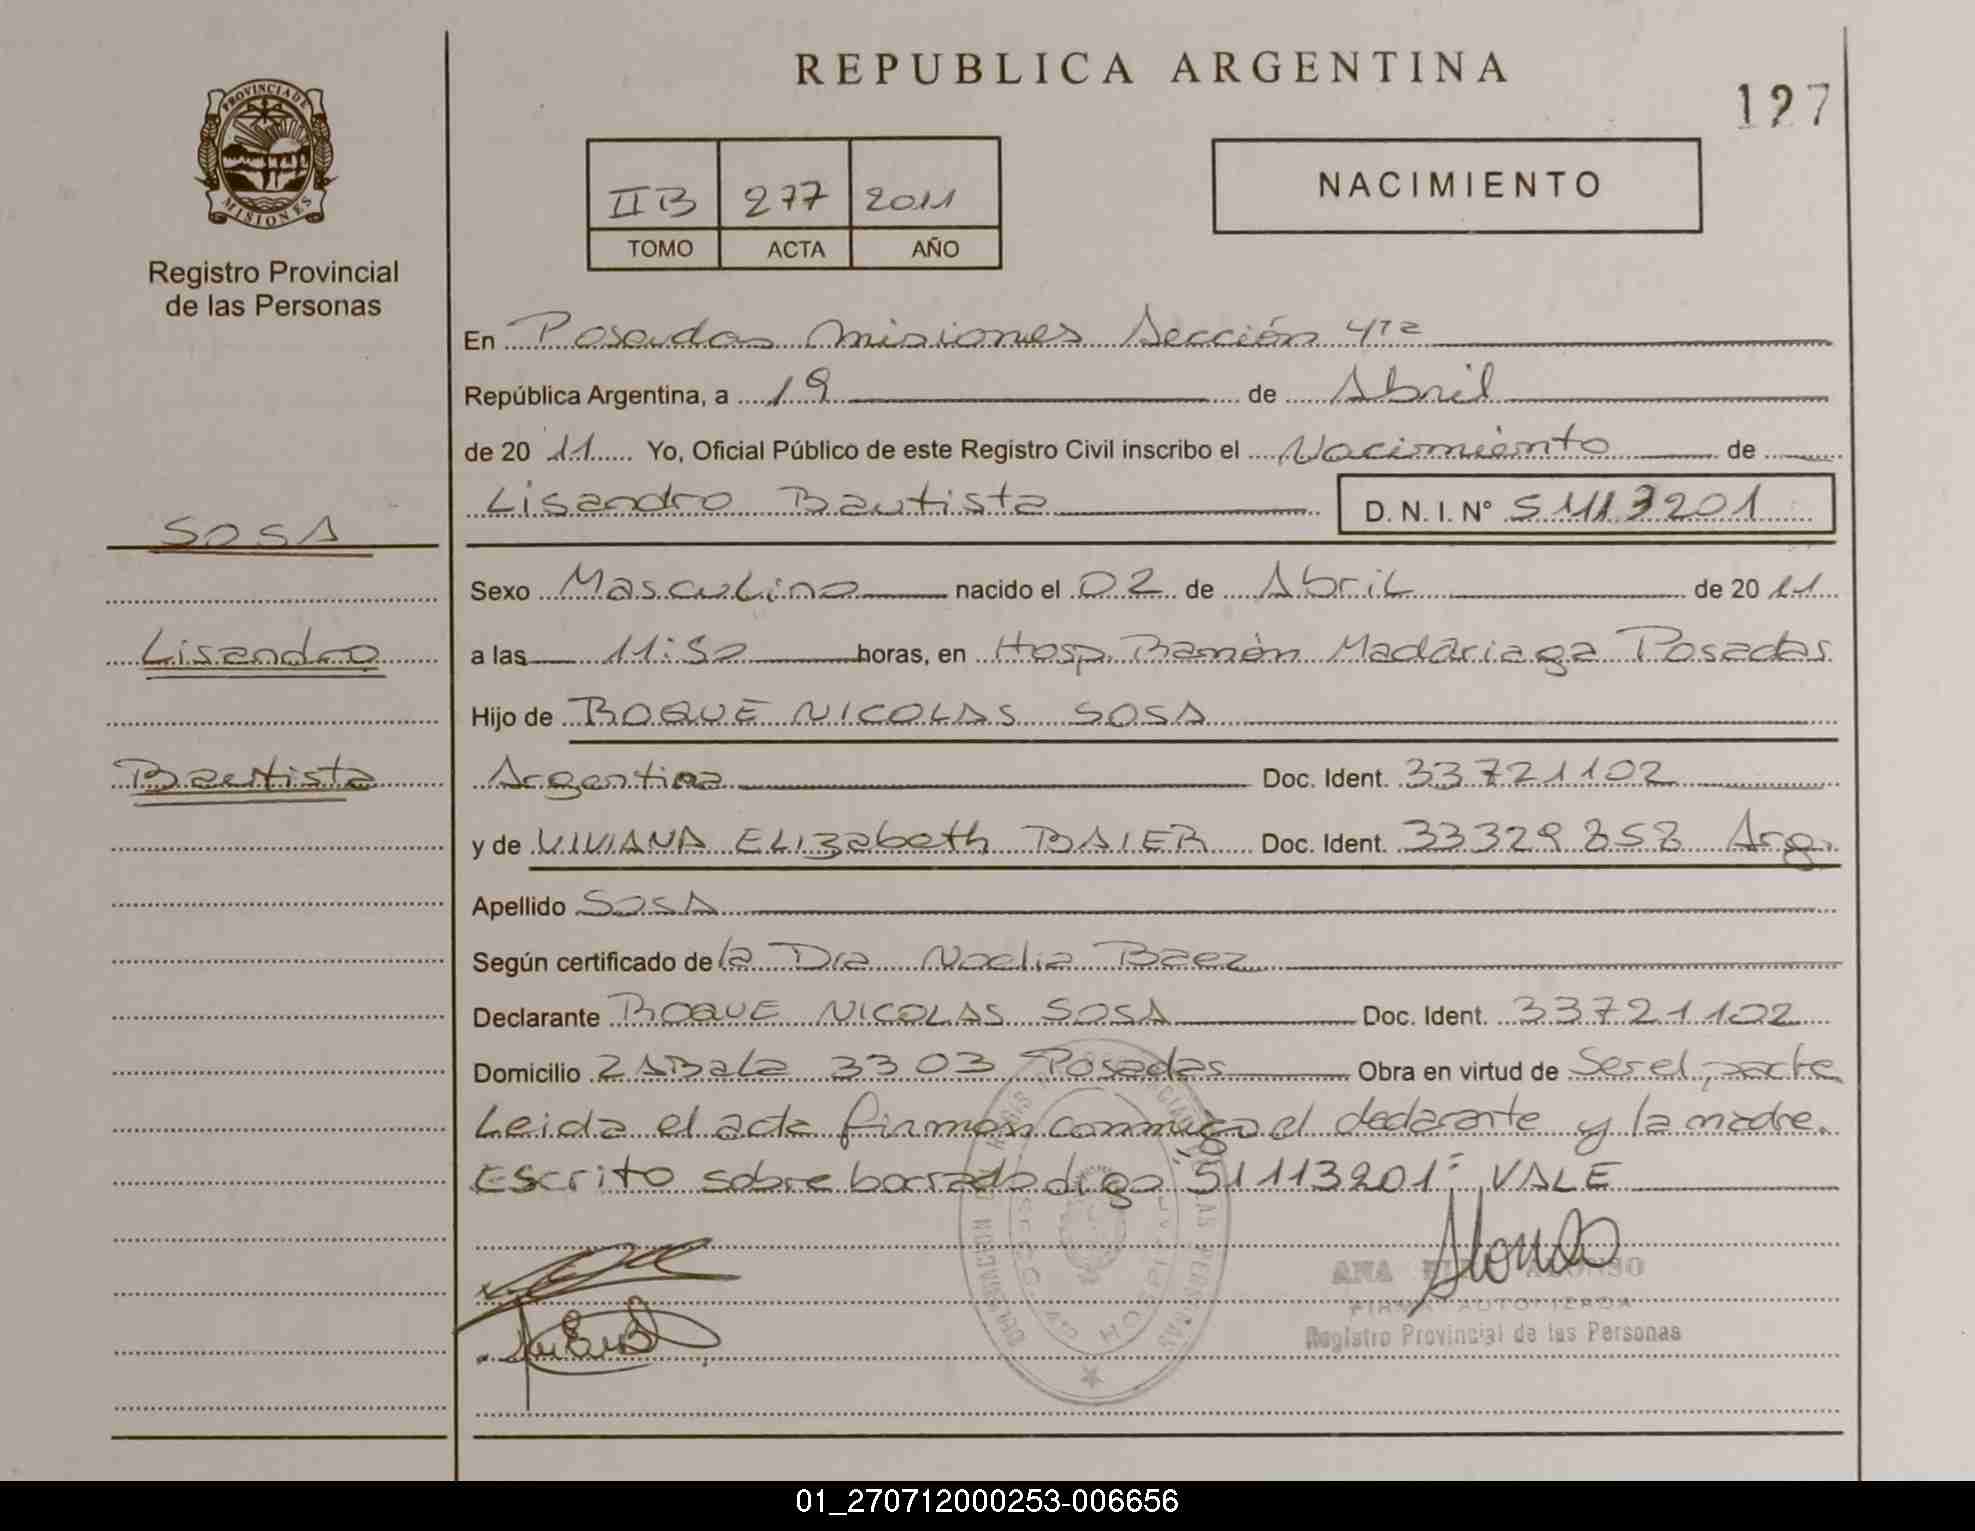 REPUBLICA ARGENTINA
127
PROVINCIA DE
MISIONES
Registro Provincial
de las Personas
II B 277 2011
TOMO ACTA AÑO
NACIMIENTO
En Posadas Misiones Sección 4ta
República Argentina, a 19 de Abril
de 20 11 Yo, Oficial Público de este Registro Civil inscribo el Nacimiento de
Lisandro Bautista D.N.I. N° 51113201
SOSA
Lisandro
Bautista
Sexo Masculino nacido el 02 de Abril de 20 11
a las 11:50 horas, en Hosp. Ramón Madariaga Posadas
Hijo de ROQUE NICOLAS SOSA
Argentina Doc. Ident. 33721102
y de VIVIANA ELIzabeth BAIER Doc. Ident. 33329858 Arg.
Apellido SOSA
Según certificado de la Dra Noelia Baez
Declarante ROQUE NICOLAS SOSA Doc. Ident. 33721102
Domicilio ZABala 3303 Posadas Obra en virtud de Ser el parte
Leida el acta firman conmigo el declarante y la madre.
Escrito sobre borrado digo "51113201" VALE
ANA ALONSO
FIRMA AUTORIZADA
Registro Provincial de las Personas
01_270712000253-006656